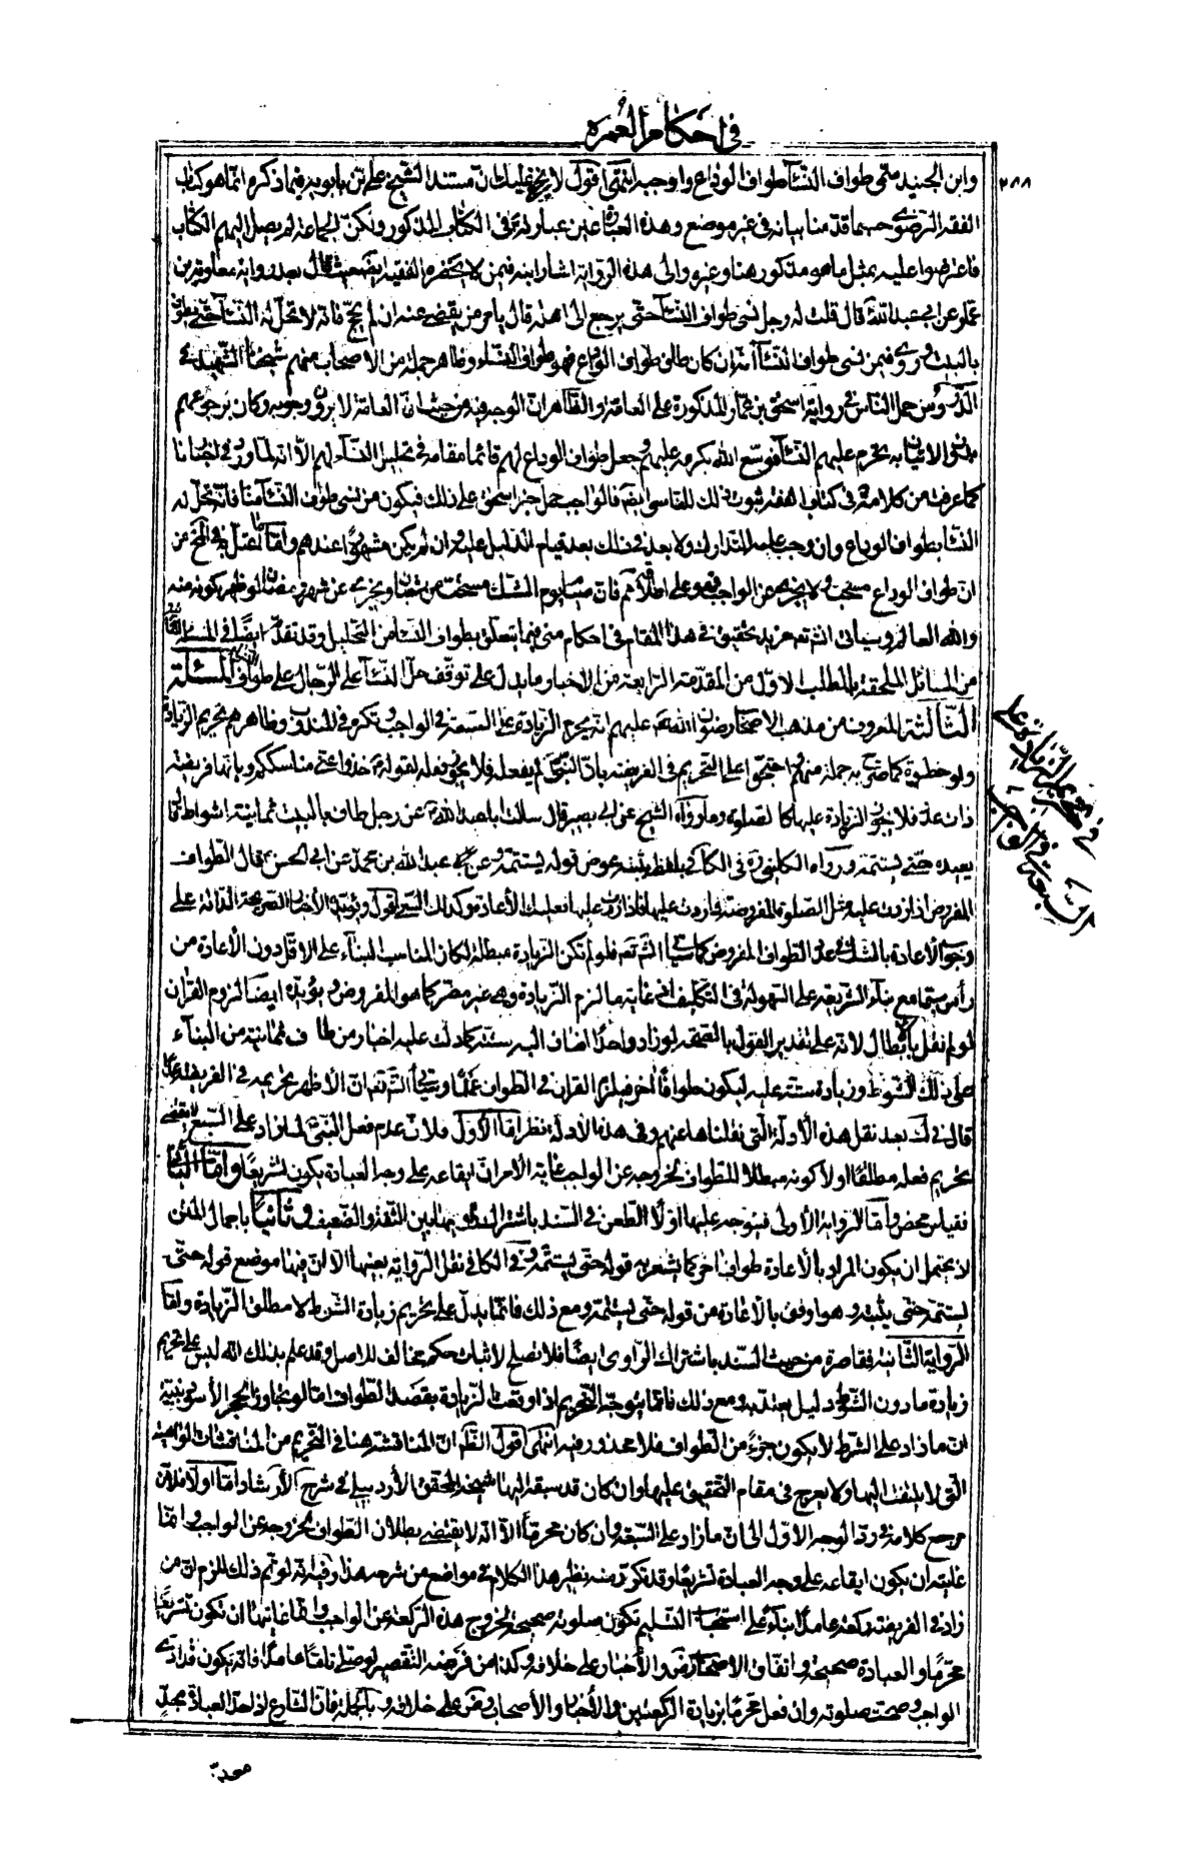 في احكام العمرة
٢٨٨
وابن الجنيد سمى طواف النساء طواف الوداع واوجبه انتهى اقول لا يخفى عليك ان مستند الشيخ علي بن بابويه فيما ذكره انما هو كتاب
الفقه الرضوي حسبما قدمنا بيانه في غير موضع وهذه العبارة عين عبارته في الكتاب المذكور ولكن الجماعة لم يصل اليهم الكتاب
فاعترضوا عليه بمثل ما هو مذكور هنا وغيره والى هذه الرواية اشار ابنه فيمن لا يحضره الفقيه ايضا حيث قال بعد رواية معاوية بن
عمار عن ابي عبد الله قال قلت له رجل نسي طواف النساء حتى يرجع الى اهله قال يأمر من يقضي عنه ان لم يحج فانه لا تحل له النساء حتى يطوف
بالبيت وروي فيمن نسي طواف النساء انه ان كان طاف طواف الوداع فهو طواف النساء وظاهر جملة من الاصحاب منهم شيخنا الشهيد في
الدروس حمل الناس في رواية اسحق بن عمار المذكورة على العامة والظاهر ان الوجه فيه من حيث ان العامة لا يرون وجوبه وكان يرجع عمهم
الاتيان به يحرم عليهم النساء فوسع الله بكرمه عليهم وجعل طواف الوداع لهم قائما مقامه في تحليل النساء لهم الا انه لما ورد في اخبارنا
كما عرفت من كلامه في كتاب الفقه ثبوت ذلك للناسي ايضا فالواجب حمل خبر اسحق على ذلك فيكون من نسي طواف النساء منا فانه تحل له
النساء بطواف الوداع وان وجب عليه التدارك ولا بعد في ذلك بعد قيام الدليل عليه وان لم يكن مشهورا عندهم واما ما نقل في المخ من
ان طواف الوداع مستحب ولا يجزي عن الواجب فهو على اطلاقه مم فان صيام يوم الشك مستحب من شعبان ويجزي عن شهر رمضان لو ظهر كونه منه
والله العالم وسيأتي انشاء تعم مزيد تحقيق في هذا المقام في احكام منى فيما يتعلق بطواف النساء من التحليل وقد تقدم ايضا في المسئلة
من المسائل الملحقة بالمطلب الاول من المقدمة الرابعة من الاخبار ما يدل على توقف حل النساء على الرجال على طواف المسئلة
الثالثة المعروف من مذهب الاصحاب رضوان الله عليهم انه يحرم الزيادة على السبعة في الواجب وتكره في المندوب وظاهرهم تحريم الزيادة
ولو خطوة كما صرح به جملة منهم واحتجوا على التحريم في الفريضة بان النبي لم يفعله فلا يجوز فعله لقوله خذوا عني مناسككم وبانها فريضة
ذات عدد فلا يجوز الزيادة عليها كالصلوة وما رواه الشيخ عن ابي بصير قال سالت ابا عبد الله عن رجل طاف بالبيت ثمانية اشواط قال
يعيده حتى يستتمه ورواه الكليني في الكافي بلفظ يثبته عوض قوله يستتمه وعن عبد الله بن محمد عن ابي الحسن قال الطواف
المفروض اذا زدت عليه مثل الصلوة المفروضة اذا زدت عليها فاذا زدت عليها فعليك الاعادة وكذلك السعي اقول ويؤيده الاخبار الصريحة الدالة على
وجوب الاعادة بالشك في عدد الطواف المفروض كما سيأتي انشاء تعم فلو لم تكن الزيادة مبطلة لكان المناسب البناء على الاقل دون الاعادة من
رأس سيما مع بناء الشريعة على السهولة في التكليف اذ غاية ما لزم الزيادة وهي غير مضر كما هو المفروض ويؤيده ايضا لزوم القران
لو لم نقل بالابطال لانه على تقدير القول بالصحة لو زاد واحدا اضاف اليه ستة كما دلت عليه اخبار من طاف ثمانية من البناء
على ذلك الشوط وزيادة ستة عليه ليكون طوافا اخر فيلزم القران في الطواف عمدا وسيأتي انشاء تعم ان الاظهر تحريمه في الفريضة
قال في ك بعد نقل هذه الادلة التي نقلناها عنهم وفي هذه الادلة نظر اما الاول فلان عدم فعل النبي لما زاد على السبع لا يقتضي
تحريم فعله مطلقا اولا كونه مبطلا للطواف لخروجه عن الواجب غاية الامر ان ايقاعه على وجه العبادة يكون تشريعا واما الثاني
فقياس محض واما الرواية الاولى فيتوجه عليها اولا الطعن في السند باشتراك راويها بين الثقة والضعيف وثانيا باجمال المتن
لا يحتمل ان يكون المراد بالاعادة طواف اخر كما يشعر به قوله حتى يستتمه وفي الكافي نقل الرواية بعينها الا ان فيها موضع قوله حتى
يستتمه حتى يثبته وهو اوفق بالاعادة من قوله حتى يستتمه ومع ذلك فانما يدل على تحريم زيادة الشوط لا مطلق الزيادة واما
الرواية الثانية فقاصرة من حيث السند باشتراك الراوي ايضا فلا تصلح لاثبات حكم مخالف للاصل وقد علم بذلك انه ليس على تحريم
زيادة ما دون الشوط دليل يعتد به ومع ذلك فانما يتوجه التحريم اذا وقعت الزيادة بقصد الطواف اما لو تجاوز الحجر الاسود بنية
ان ما زاد على الشوط لا يكون جزءا من الطواف فلا محذور فيه انتهى اقول الظ ان المناقشة هنا في التحريم من المناقشات الواهية
التي لا يلتفت اليها ولا يعرج في مقام التحقيق عليها وان كان قد سبقه اليها شيخه المحقق الاردبيلي في شرح الارشاد اما اولا فلان
مرجع كلامه في رد الوجه الاول الى ان ما زاد على السبعة وان كان محرما الا انه لا يقتضي بطلان الطواف لخروجه عن الواجب وانما
غايته ان يكون ايقاعه على وجه العبادة تشريعا وقد تكرر منه نظير هذا الكلام في مواضع من شرحه هذا وفيه انه لو تم ذلك للزم ان من
زاد في الفريضة ركعة عامدا بناء على استحباب التسليم تكون صلوته صحيحة لخروج هذه الركعة عن الواجب وايقاعها ان يكون تشريعا
محرما والعبادة صحيحة واتفاق الاصحاب رض والاخبار على خلافه وكذا من فرضه التقصير لو صلى تماما عامدا فانه يكون قد ادى
الواجب وصحت صلوته وان فعل محرما بزيادة الركعتين والاخبار والاصحاب رض على خلافه وبالجملة فان الشارع اذا حد العبادة بحد
معد
في تحريم الزيادة على
السبعة في الواجب